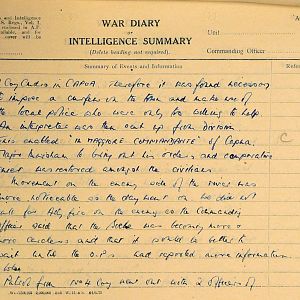 s and Intelligence
S. Regs., Vol. I.
nclosed in A.F.
ilable, and for
cover will be
WAR DIARY
OR
INTELLIGENCE SUMMARY
(Delete heading not required).
Unit
Commanding Officer
Summary of Events and Information
Coy Comdrs in CAPUA. Therefore it was found necessary
to impose a curfew on the town and make use of
the local police who were only too willing to help.
An interpreter was then sent up from division
this enabled "IL MAGGIORE COMMANDANTE" of Capua,
Major to bring out his orders and
was restored amongst the civilians.
Movement on the enemy side of the river was
more noticeable as the day went on he did not
for Arty fire on the enemy as the Commanding
Officer said that the Boche was becoming more &
more careless and that it would be better to
wait until the O.P.s had reported more information
later
Patrol from No 4 Coy went out with 2 Officers of
C